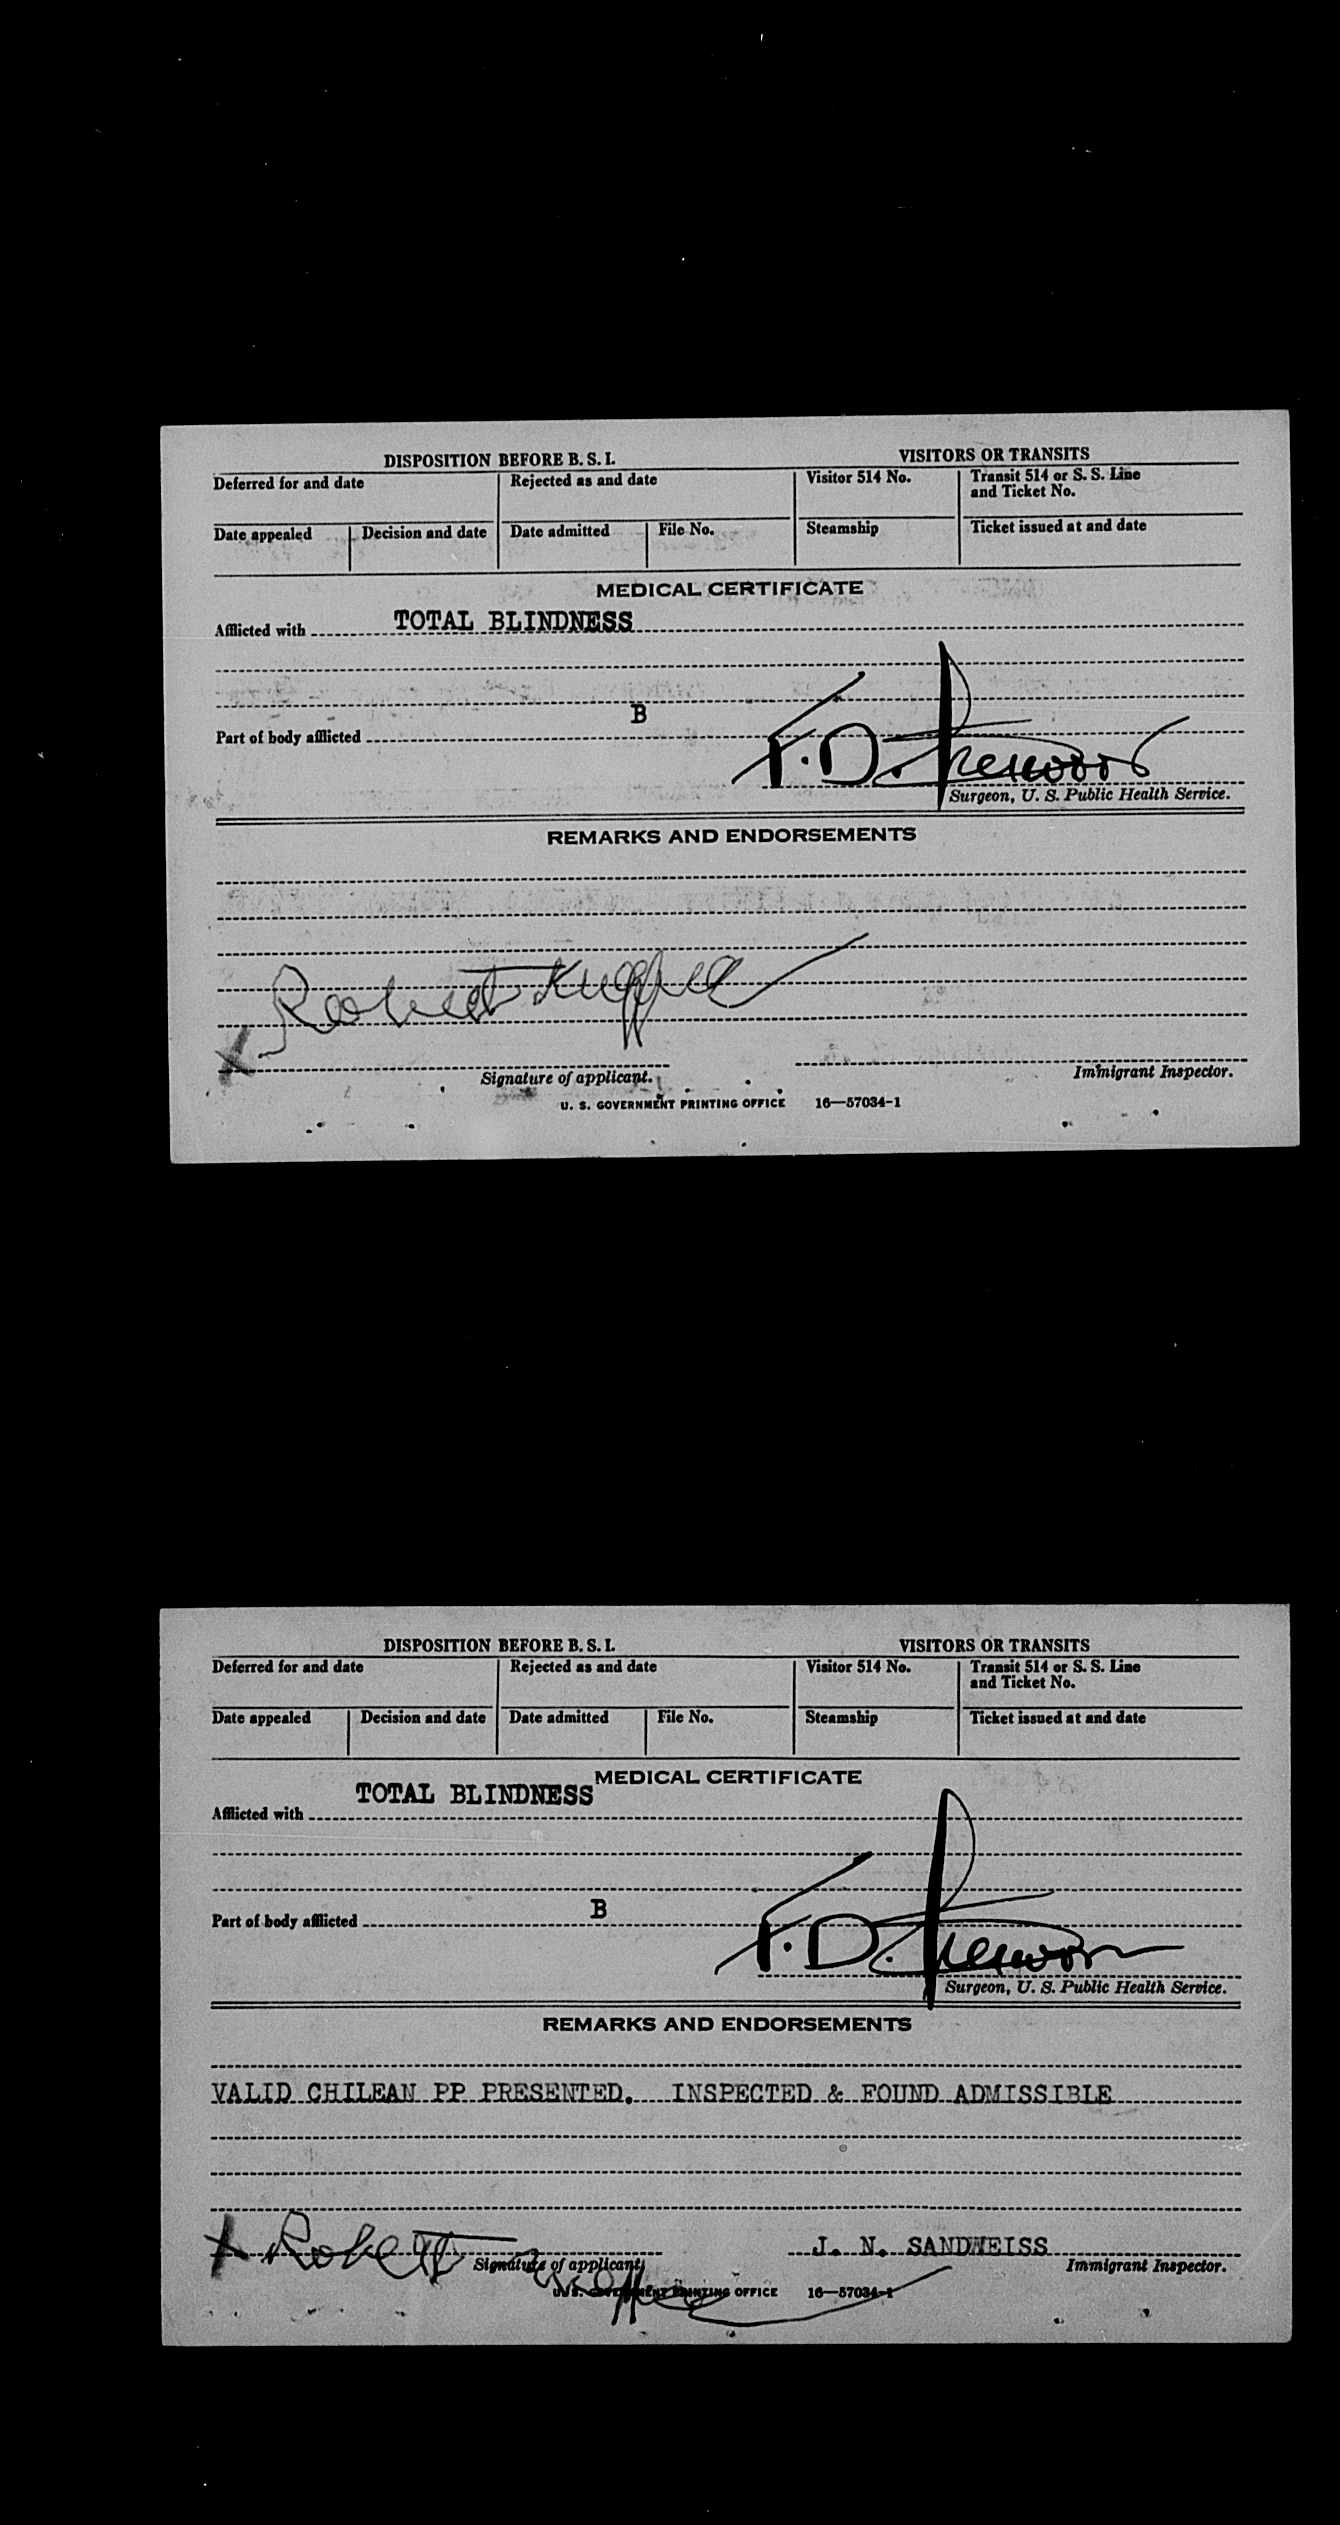 DISPOSITION BEFORE B. S. I. VISITORS OR TRANSITS
Deferred for and date Rejected as and date Visitor 514 No. Transit 514 or S. S. Line
and Ticket No.
Date appealed Decision and date Date admitted File No. Steamship Ticket issued at and date
MEDICAL CERTIFICATE
Afflicted with TOTAL BLINDNESS
B
Part of body afflicted
F. D.
Surgeon, U. S. Public Health Service.
REMARKS AND ENDORSEMENTS
Robert
X
Signature of applicant. Immigrant Inspector.
U. S. GOVERNMENT PRINTING OFFICE 16—57034-1
DISPOSITION BEFORE B. S. I. VISITORS OR TRANSITS
Deferred for and date Rejected as and date Visitor 514 No. Transit 514 or S. S. Line
and Ticket No.
Date appealed Decision and date Date admitted File No. Steamship Ticket issued at and date
MEDICAL CERTIFICATE
Afflicted with TOTAL BLINDNESS
B
Part of body afflicted
F. D.
Surgeon, U. S. Public Health Service.
REMARKS AND ENDORSEMENTS
VALID CHILEAN PP PRESENTED. INSPECTED & FOUND ADMISSIBLE
X Robert J. N. SANDWEISS
Signature of applicant. Immigrant Inspector.
U. S. GOVERNMENT PRINTING OFFICE 16—57034-1